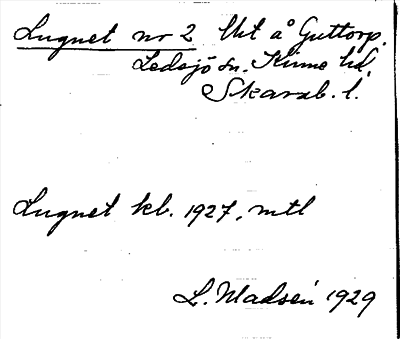 Lugnet nr 2 lht å Guttorp.
Ledsjö sn. Kinne hd.
Skarab. l.
Lugnet kb. 1927, mtl
L. Madsén 1929